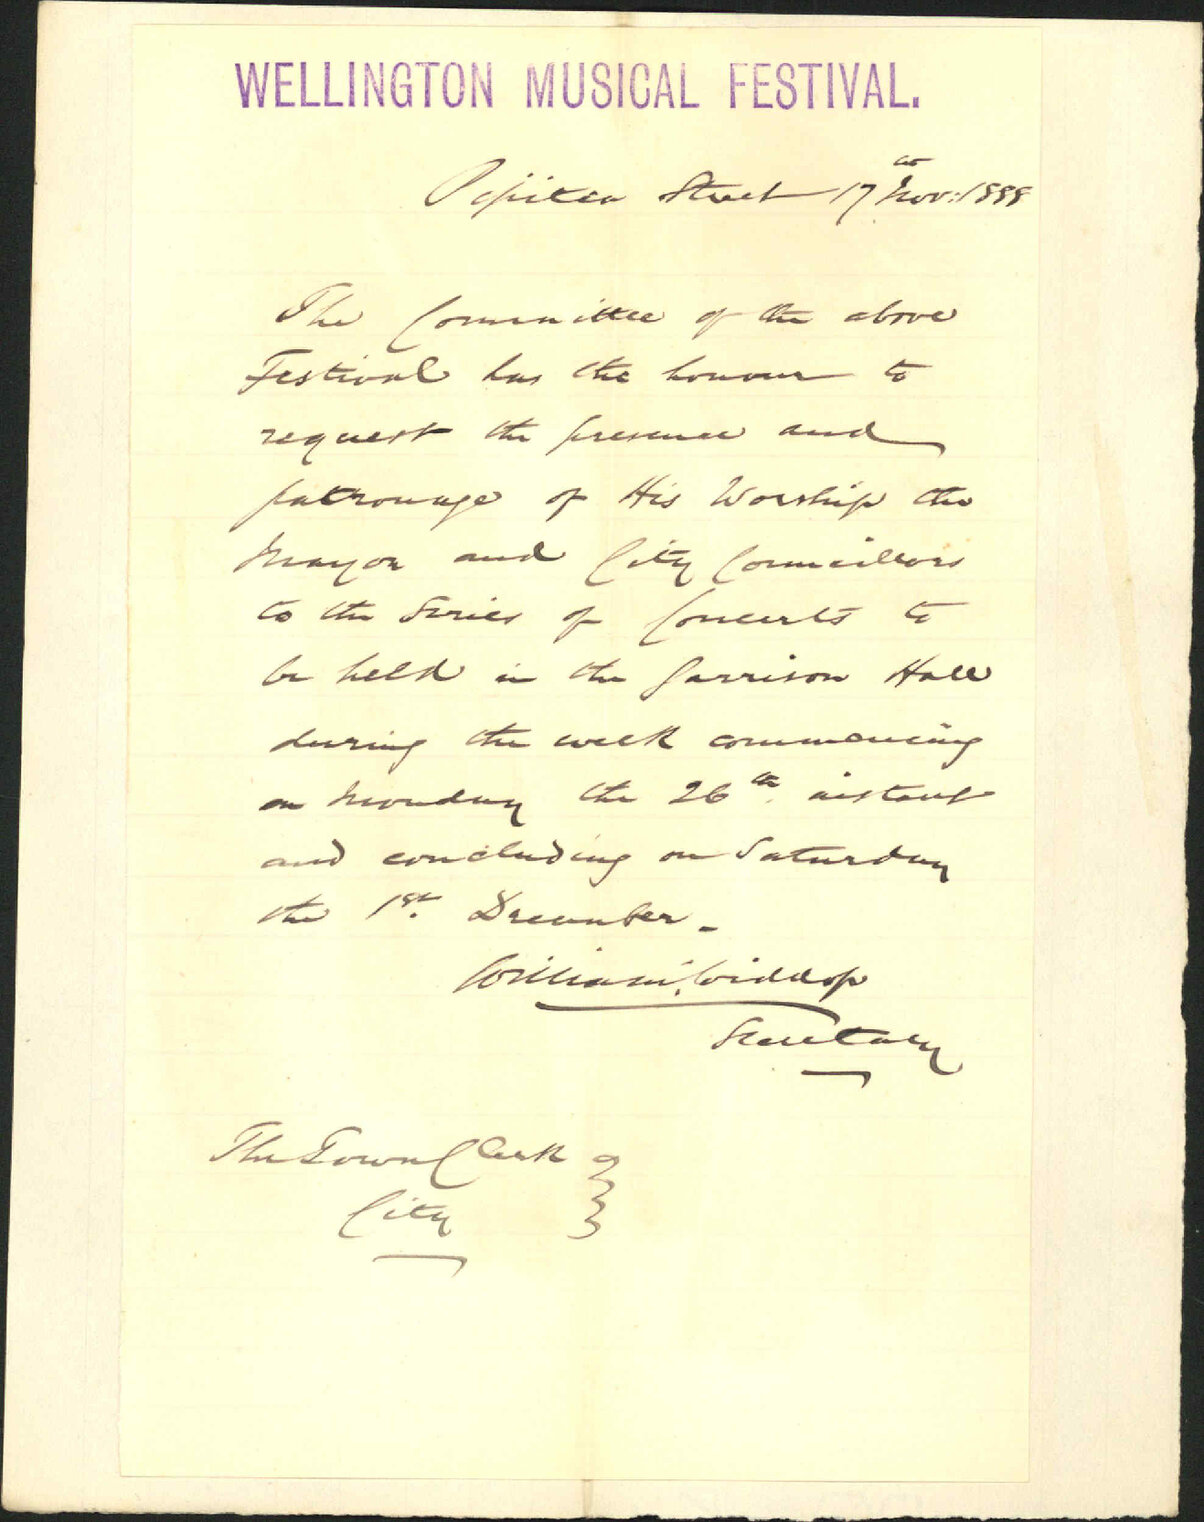 WELLINGTON MUSICAL FESTIVAL.
Pipitea Street 17th Nov: 1888
The Committee of the above
Festival has the honour to
request the presence and
patronage of His Worship the
Mayor and City Councillors
to the Series of Concerts to
be held in the Garrison Hall
during the week commencing
on Monday the 26th instant
and concluding on Saturday
the 1st. December.
William Widdop
Secretary
The Town Clerk
City